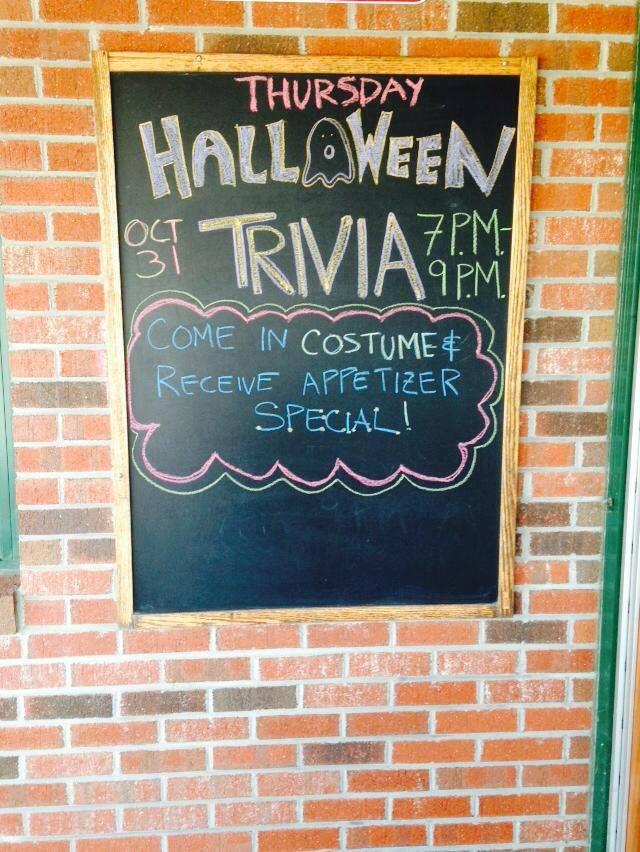 THURSDAY
HALLOWEEN
OCT 31 TRIVIA 7 P.M-
9 P.M.
COME IN COSTUME &
RECEIVE APPETIZER
SPECIAL!